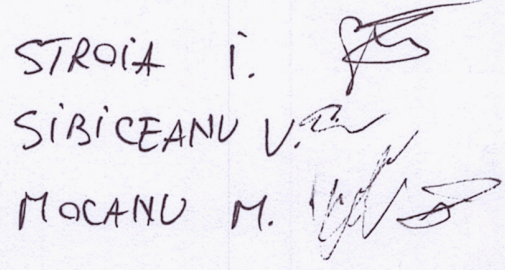 STROIA I.
SIBICEANU V.
MOCANU M.